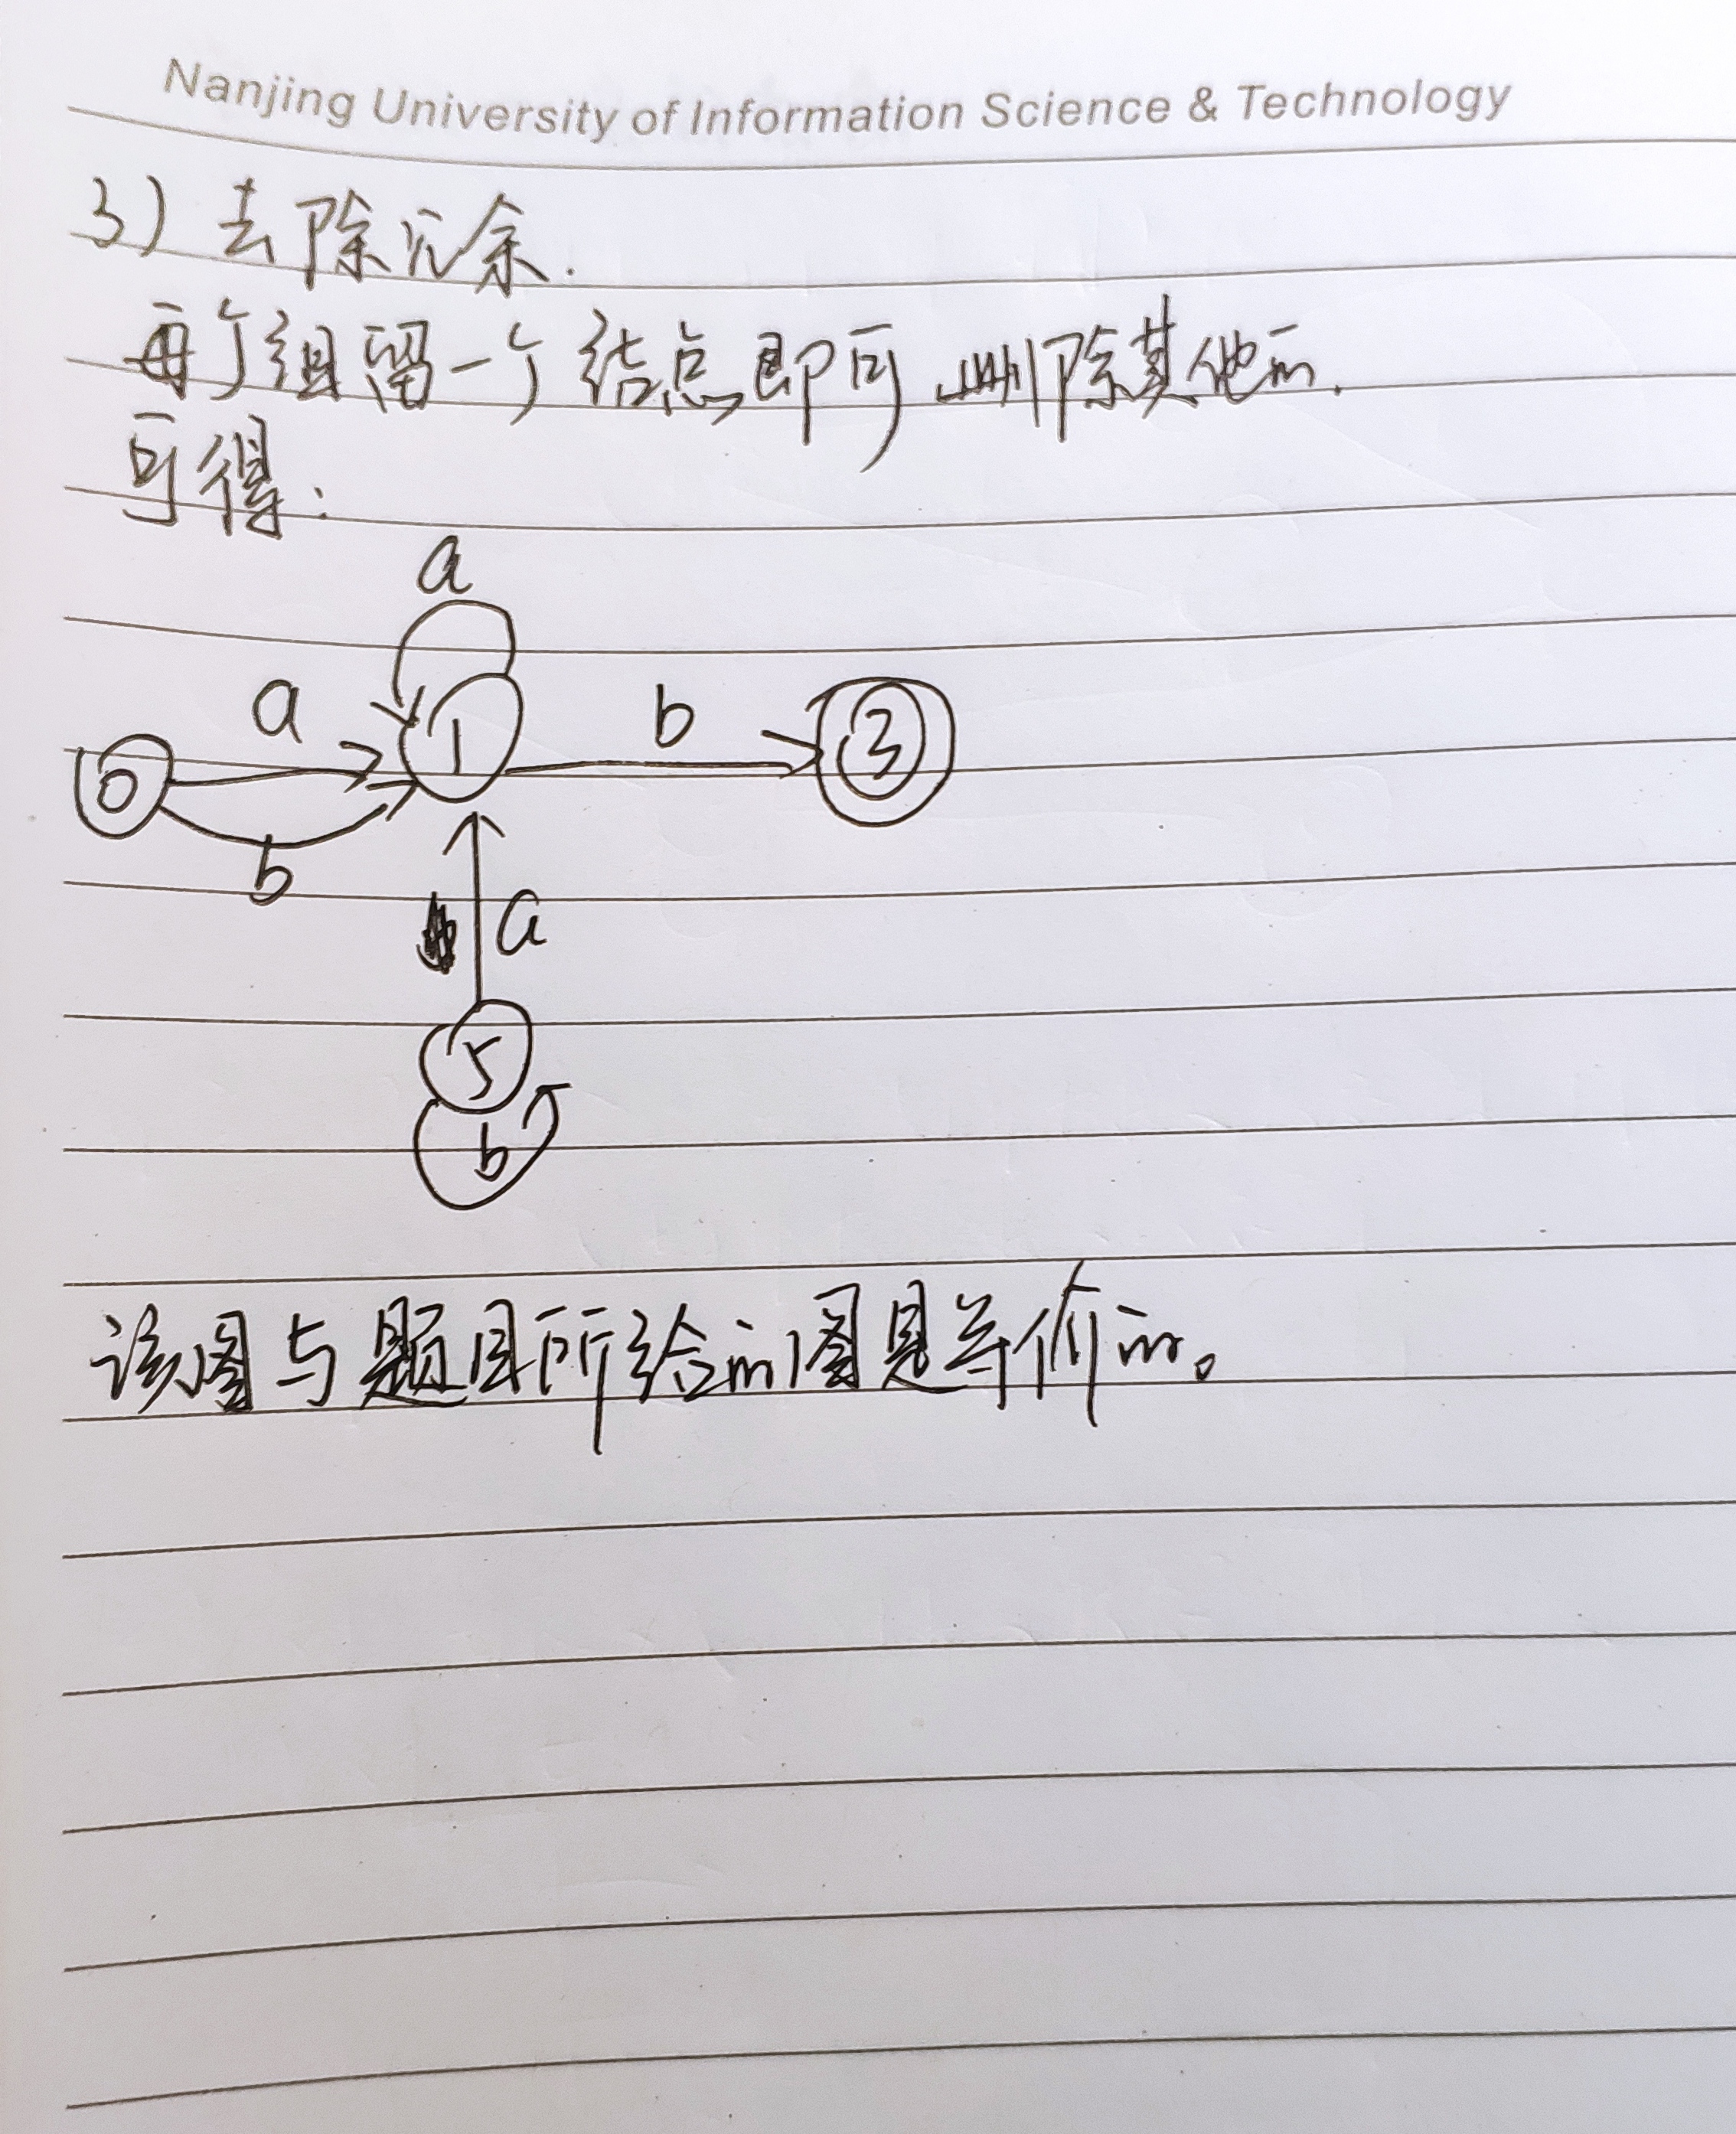 Nanjing University of Information Science & Technology
3) 去除冗余.
每个组留一个结点即可 删除其他的.
可得:
a
a
b
1
3
0
b
a
5
b
该图与题目所给的图是等价的。